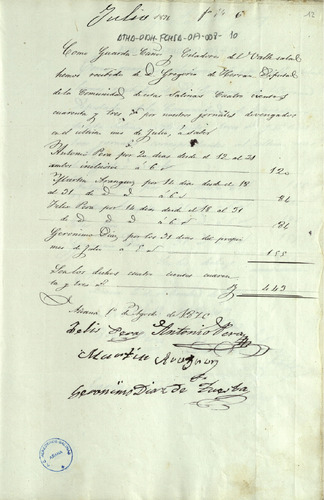 Julio
12
ATHA-DAH-FCHSA-019-008-10
Como Guarda Caños y Celadores del Valle salado
hemos recibido de D. Gregorio de Herran Diputado
de la Comunidad de estas Salinas Cuatro cientos
cuarenta y tres rs por nuestros jornales devengados
en el ultimo mes de Julio, á saber
Antonio Pera por 20 dias desde el 12 al 31
ambos inclusive á 6 rs 120
Martin por 14 dias desde el 18
al 31 de id id á 6 rs 84
Felix Pera por 14 dias desde el 18 al 31
de id id á 6 rs 84
Geronimo Diaz por los 31 dias del propio
mes de Julio á 5 rs 155
Son los dichos cuatro cientos cuaren-
ta y tres rs 443
Añana 1º de Agosto de
Felix Pera Antonio Pera
Martin
Geronimo Diaz de Tuesta